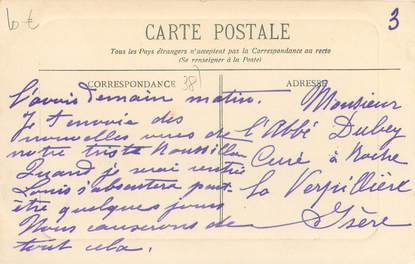 10 €
3
CARTE POSTALE
Tous les Pays étrangers n'acceptent pas la Correspondance au recto
(Se renseigner à la Poste)
CORRESPONDANCE
38
ADRESSE
l'avois demain matin.
Je t'envoie des
nouvelles vues de
notre triste Roussillon
Quand je serai rentré
Louis s'absentera peut-
être quelques jours
Nous causerons de
tout cela.
Monsieur
l'Abbé Dubey
Curé à Roche
La Verpillière
Isère